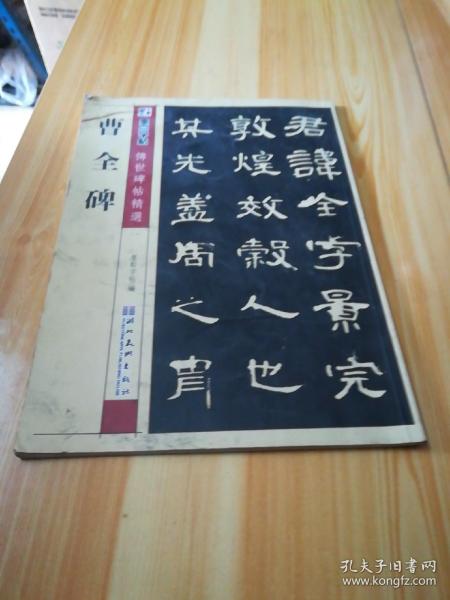 曹全碑
傳世碑帖精選
墨點字帖 編
湖北美术出版社
君諱全字景完
敦煌效穀人也
其先蓋周之胄
孔夫子旧书网
www.kongfz.com